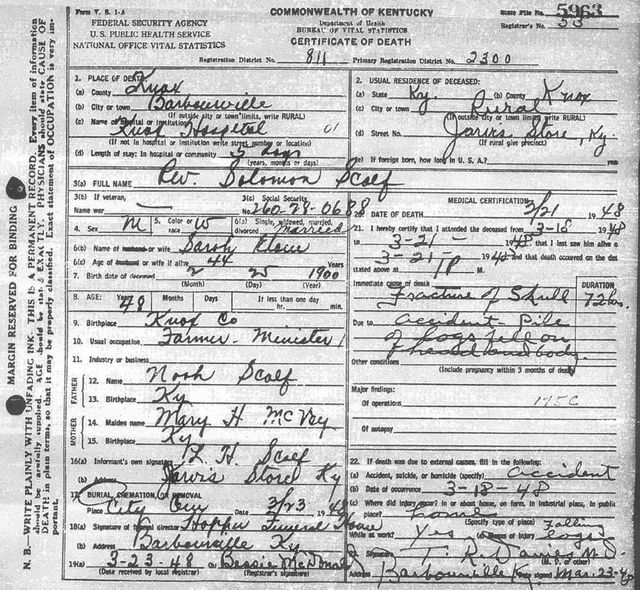 Form V. S. 1-A
FEDERAL SECURITY AGENCY
U. S. PUBLIC HEALTH SERVICE
NATIONAL OFFICE VITAL STATISTICS
COMMONWEALTH OF KENTUCKY
Department of Health
BUREAU OF VITAL STATISTICS
CERTIFICATE OF DEATH
State File No. 5963
Registrar's No. 53
Registration District No. 811 Primary Registration District No. 2300
MARGIN RESERVED FOR BINDING
N. B. WRITE PLAINLY WITH UNFADING INK. THIS IS A PERMANENT RECORD. Every item of information
should be carefully supplied. AGE should be stated EXACTLY. PHYSICIANS should state CAUSE OF
DEATH in plain terms, so that it may be properly classified. Exact statement of OCCUPATION is very im-
portant.
1. PLACE OF DEATH:
(a) County Knox
(b) City or town Barbourville
(If outside city or town limits, write RURAL)
(c) Name of hospital or institution:
Knox Hospital 01
(If not in hospital or institution write street number or location)
(d) Length of stay: In hospital or community 3 days
(years, months or days)
2. USUAL RESIDENCE OF DECEASED:
(a) State Ky. (b) County Knox
(c) City or town Rural
(If outside city or town limits write RURAL)
(d) Street No. Jarvis Store, Ky.
(If rural give precinct)
(e) If foreign born, how long in U. S. A.? years
3(a) FULL NAME Rev. Solomon Scalf
3(b) If veteran,
Name war
3(c) Social Security
No. 260-28-0688
4. Sex M
5. Color or race W
6(a) Single, widowed, married,
divorced Married
6(b) Name of husband or wife Sarah
6(c) Age of husband or wife if alive 44 Years
7. Birth date of deceased 2 25 1900
(Month) (Day) (Year)
8. AGE: Years 48 Months Days If less than one day
hr. min.
9. Birthplace Knox Co
10. Usual occupation Farmer - Minister
11. Industry or business
FATHER
12. Name Noah Scalf
13. Birthplace Ky
MOTHER
14. Maiden name Mary H McVey
15. Birthplace Ky
16(a) Informant's own signature H. Scalf
(b) Address Jarvis Store Ky
17. BURIAL, CREMATION, OR REMOVAL
Place City Date 3/23 1948
18(a) Signature of funeral director Hopper Funeral Home
(b) Address Barbourville Ky
19(a) 3-23-48 (b) Bessie McDonald
(Date received by local registrar) (Registrar's signature)
MEDICAL CERTIFICATION
20. DATE OF DEATH 3/21 1948
21. I hereby certify that I attended the deceased from 3-18 1948
to 3-21 1948 that I last saw him alive on
3-21 1948 and that death occurred on the date
stated above at 1 P M.
Immediate cause of death
Fracture of Skull
DURATION
72 hrs.
Due to accident Pile
of logs fell on
head and body.
Other conditions
(Include pregnancy within 3 months of death)
Major findings:
Of operations 175C
Of autopsy
22. If death was due to external causes, fill in the following:
(a) Accident, suicide, or homicide (specify) accident
(b) Date of occurrence 3-18-48
(c) Where did injury occur? In or about home, on farm, in industrial place, in public
place?
(Specify type of place)
While at work? Yes (e) Means of injury Falling
logs
23. Signature T. R. Davies M.D.
(M. D. or other)
Address Barbourville Ky. Date signed Mar. 23-48